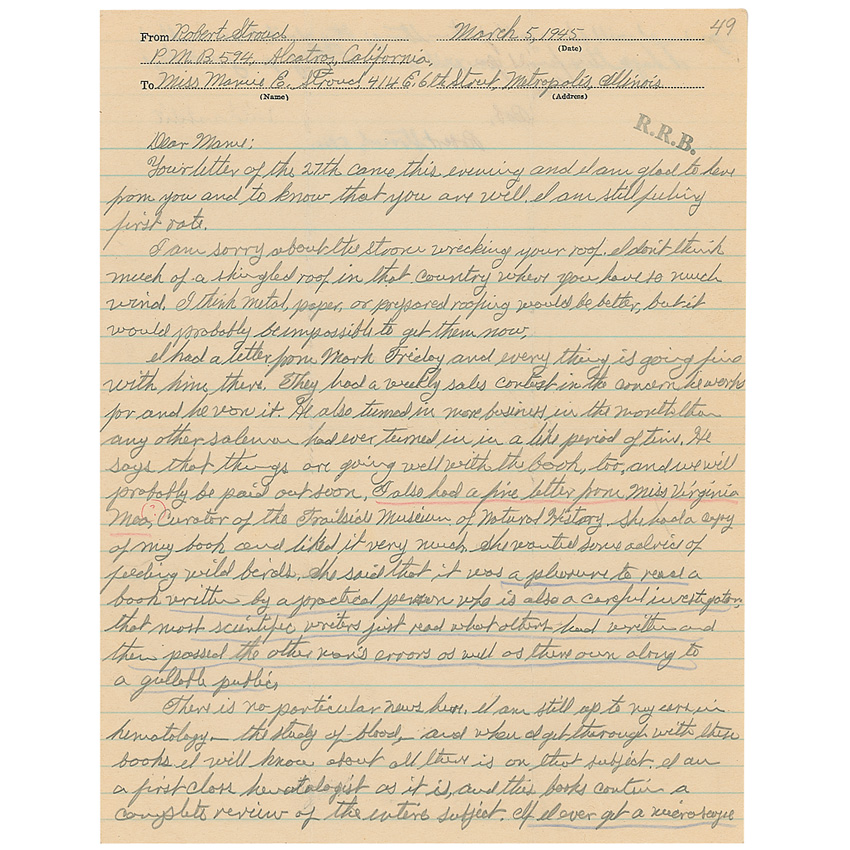 49
From Robert Stroud March 5, 1945
(Date)
P.M.B. 594, Alcatraz, California,
To Miss Mamie E. Stroud 414 E. 6th Street, Metropolis, Illinois
(Name) (Address)
R.R.B.
Dear Mamie:
Your letter of the 27th came this evening and I am glad to here
from you and to know that you are well. I am still feeling
first rate.
I am sorry about the storm wrecking your roof. I don't think
much of a shingled roof in that country where you have so much
wind. I think metal, paper, or prepared roofing would be better, but it
would probably be impossible to get them now.
I had a letter from Mark Friday and every thing is going fine
with him there. They had a weekly sales contest in the concern he works
for and he won it. He also turned in more business in the month than
any other salesman had ever turned in in a like period of time. He
says that things are going well with the book, too, and we will
probably be paid out soon. I also had a fine letter from Miss Virginia
Moe, Curator of the Trailside Museum of Natural History. She had a copy
of my book and liked it very much. She wanted some advice of
feeding wild birds. She said that it was a pleasure to read a
book written by a practical person who is also a careful investigator,
that most scientific writers just read what others had written and
then passed the other man's errors as well as there own along to
a gullable public.
There is no particular news here. I am still up to my ears in
hematology — the study of blood, and when I get through with these
books I will know about all there is on that subject. I am
a first class hematologist as it is, and this books contain a
complete review of the entire subject. If I ever get a microscope